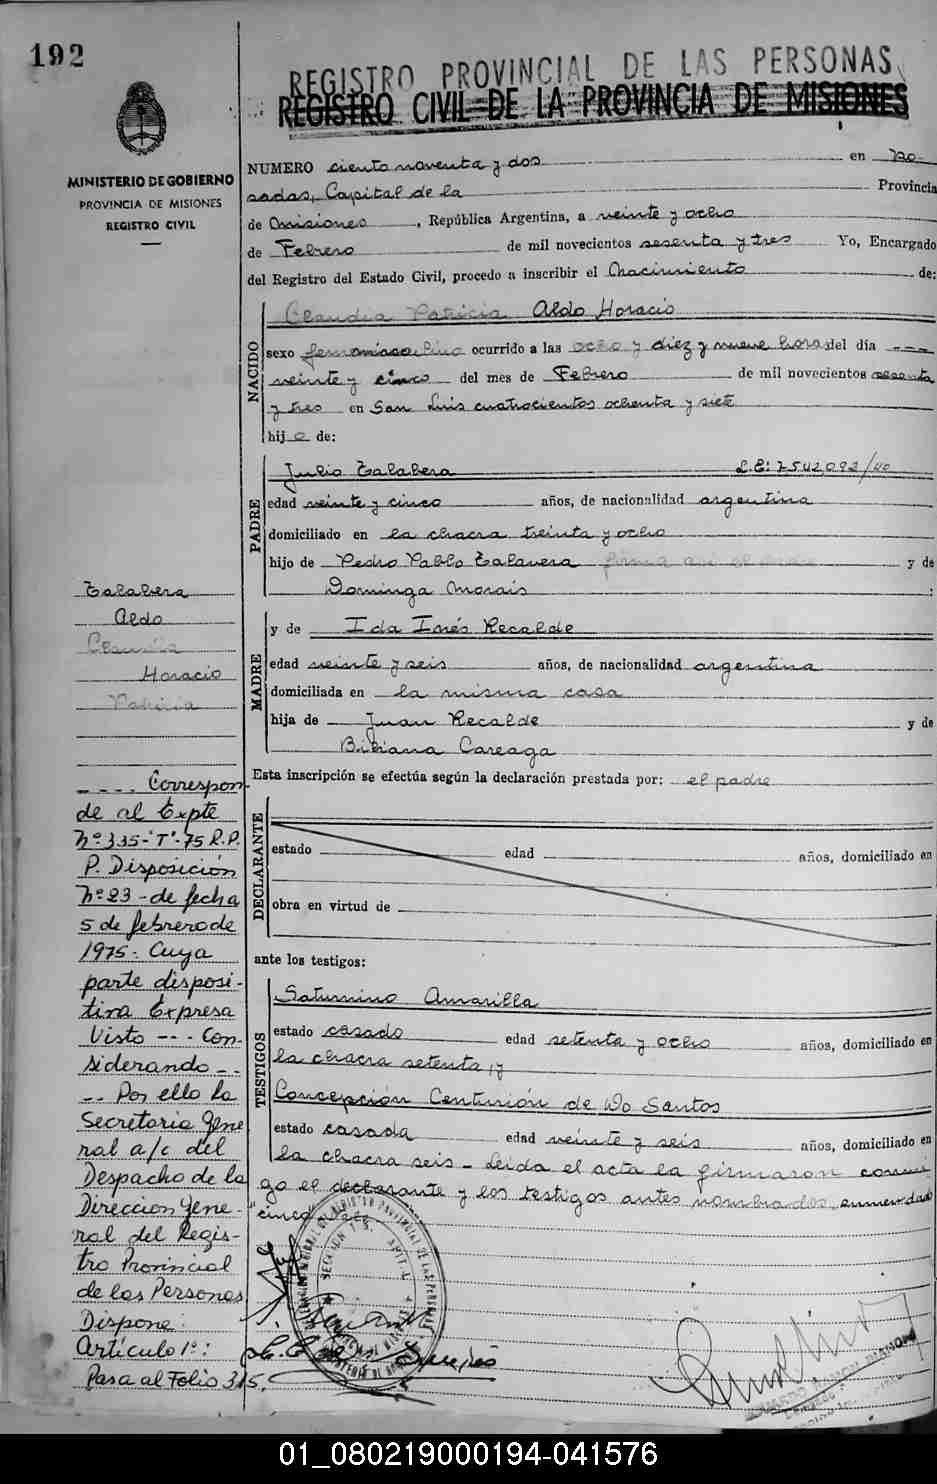 192
REGISTRO PROVINCIAL DE LAS PERSONAS
REGISTRO CIVIL DE LA PROVINCIA DE MISIONES
MINISTERIO DE GOBIERNO
PROVINCIA DE MISIONES
REGISTRO CIVIL
NUMERO ciento noventa y dos en Po-
sadas, Capital de la Provincia
de Misiones, República Argentina, a veinte y ocho
de Febrero de mil novecientos sesenta y tres Yo, Encargado
del Registro del Estado Civil, procedo a inscribir el Nacimiento de:
NACIDO
Claudia Patricia Aldo Horacio
sexo ocurrido a las ocho y diez y nueve horas del día
veinte y cinco del mes de Febrero de mil novecientos sesenta
y tres en San Luis cuatrocientos ochenta y siete
hijo de:
PADRE
Julio Talabera L.E: 7542,092/40
edad veinte y cinco años, de nacionalidad argentina
domiciliado en la chacra treinta y ocho
hijo de Pedro Pablo Talavera firma así el padre y de
Dominga Morais
MADRE
y de Ida Inés Recalde
edad veinte y seis años, de nacionalidad argentina
domiciliada en la misma casa
hija de Juan Recalde y de
Bibiana Careaga
Esta inscripción se efectúa según la declaración prestada por: el padre
DECLARANTE
estado edad años, domiciliado en
obra en virtud de
ante los testigos:
TESTIGOS
Saturnino Amarilla
estado casado edad setenta y ocho años, domiciliado en
la chacra setenta, y
Concepción Centurión de Do Santos
estado casada edad veinte y seis años, domiciliado en
la chacra seis - Leida el acta la firmaron conmi
go el declarante y los testigos antes nombrados, enmendado
"cinco" vale
Talabera
Aldo
Claudia
Horacio
Patricia
- - - - Correspon
de al Expte
Nº 335-"T"-75 R.P.
P. Disposición
Nº 23 - de fecha
5 de febrero de
1975. Cuya
parte disposi-
tiva Expresa
Visto - - - Con-
siderando - -
- - Por ello la
Secretaria Gene
ral a/c del
Despacho de la
Dirección Gene-
ral del Regis-
tro Provincial
de las Personas
Dispone:
Artículo 1º:
Pasa al Folio 315.
01_080219000194-041576